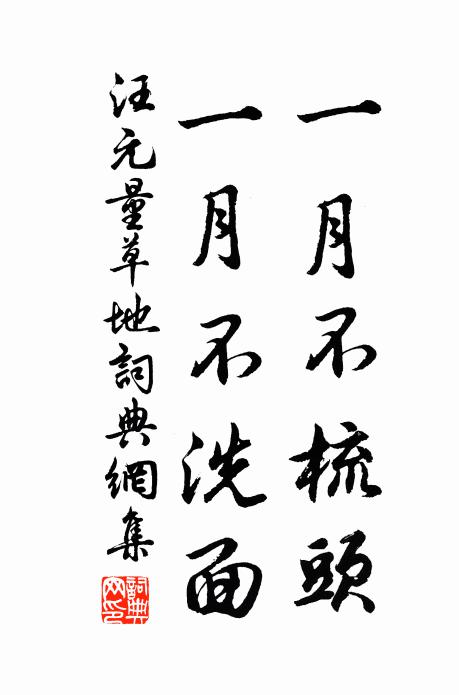 一月不梳頭
一月不洗面
汪元量草地詞典網集
詞典网印